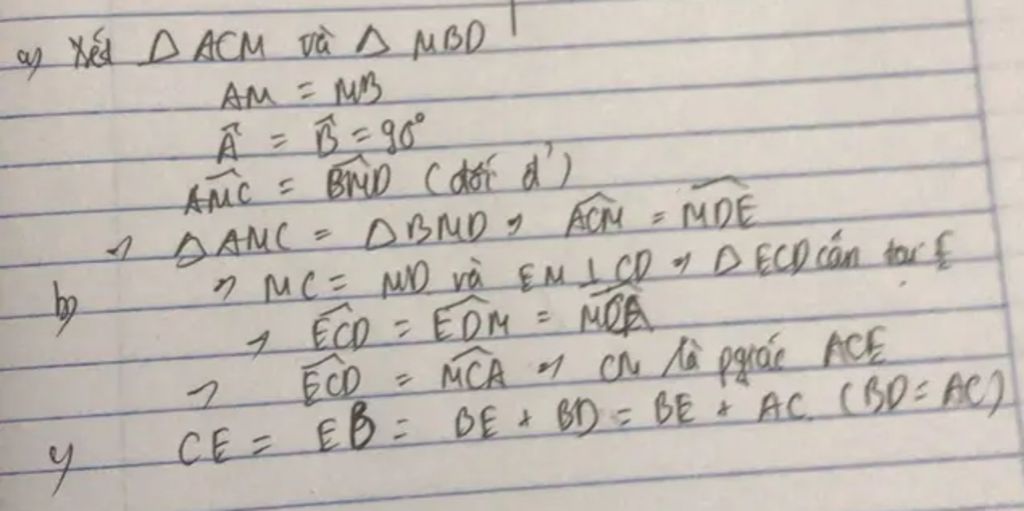 a) Xét Δ ACM và Δ MBD
AM = MB
Â = B̂ = 90°
\widehat{AMC} = \widehat{BMD} (đối đ')
=> Δ AMC = Δ BMD => \widehat{ACM} = \widehat{MDE}
b) => MC = MD và EM ⊥ CD => Δ ECD cân tại E
=> \widehat{ECD} = \widehat{EDM} =
=> \widehat{ECD} = \widehat{MCA} => CM là pgiác ACE
CE = EB = BE + BD = BE + AC. (BD = AC)